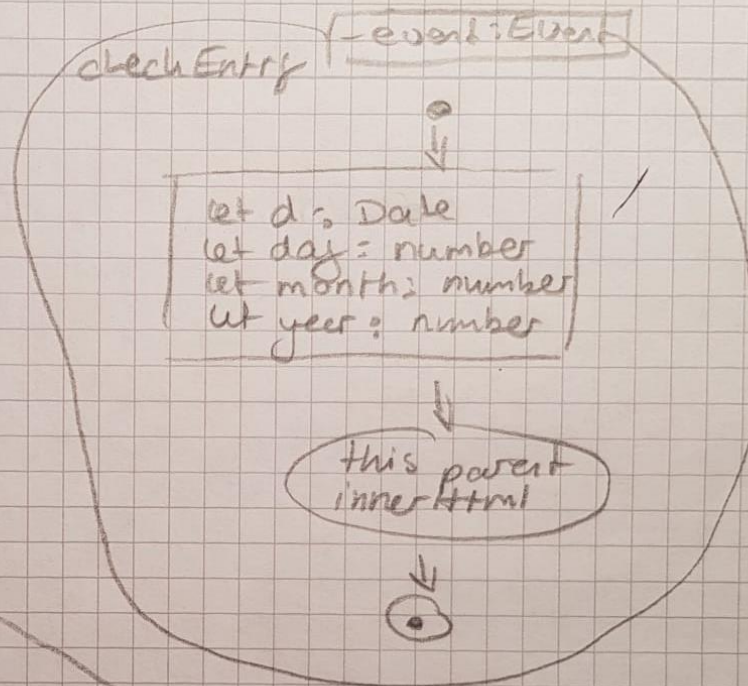 checkEntry
-event:Event
let d: Date
let day: number
let month: number
let yeer: number
this parent
innerHtml